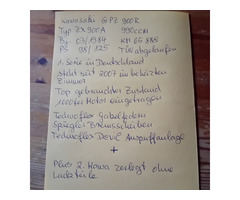 Kawasaki GPZ 900R
Typ ZX900A 990ccm
Bj. 03/1984 KM 66.885
PS 98/125 TÜV abgelaufen
1. Serie in Deutschland
steht seit 2007 im beheizten
Zimmer
Top gebrauchter Zustand
1000er Motor eingetragen
Technoflex Gabelfedern
Spiegler Bremsscheiben
Technoflex DEVIL Auspuffanlage
+
Plus 2. Kawa zerlegt ohne
Lackteile